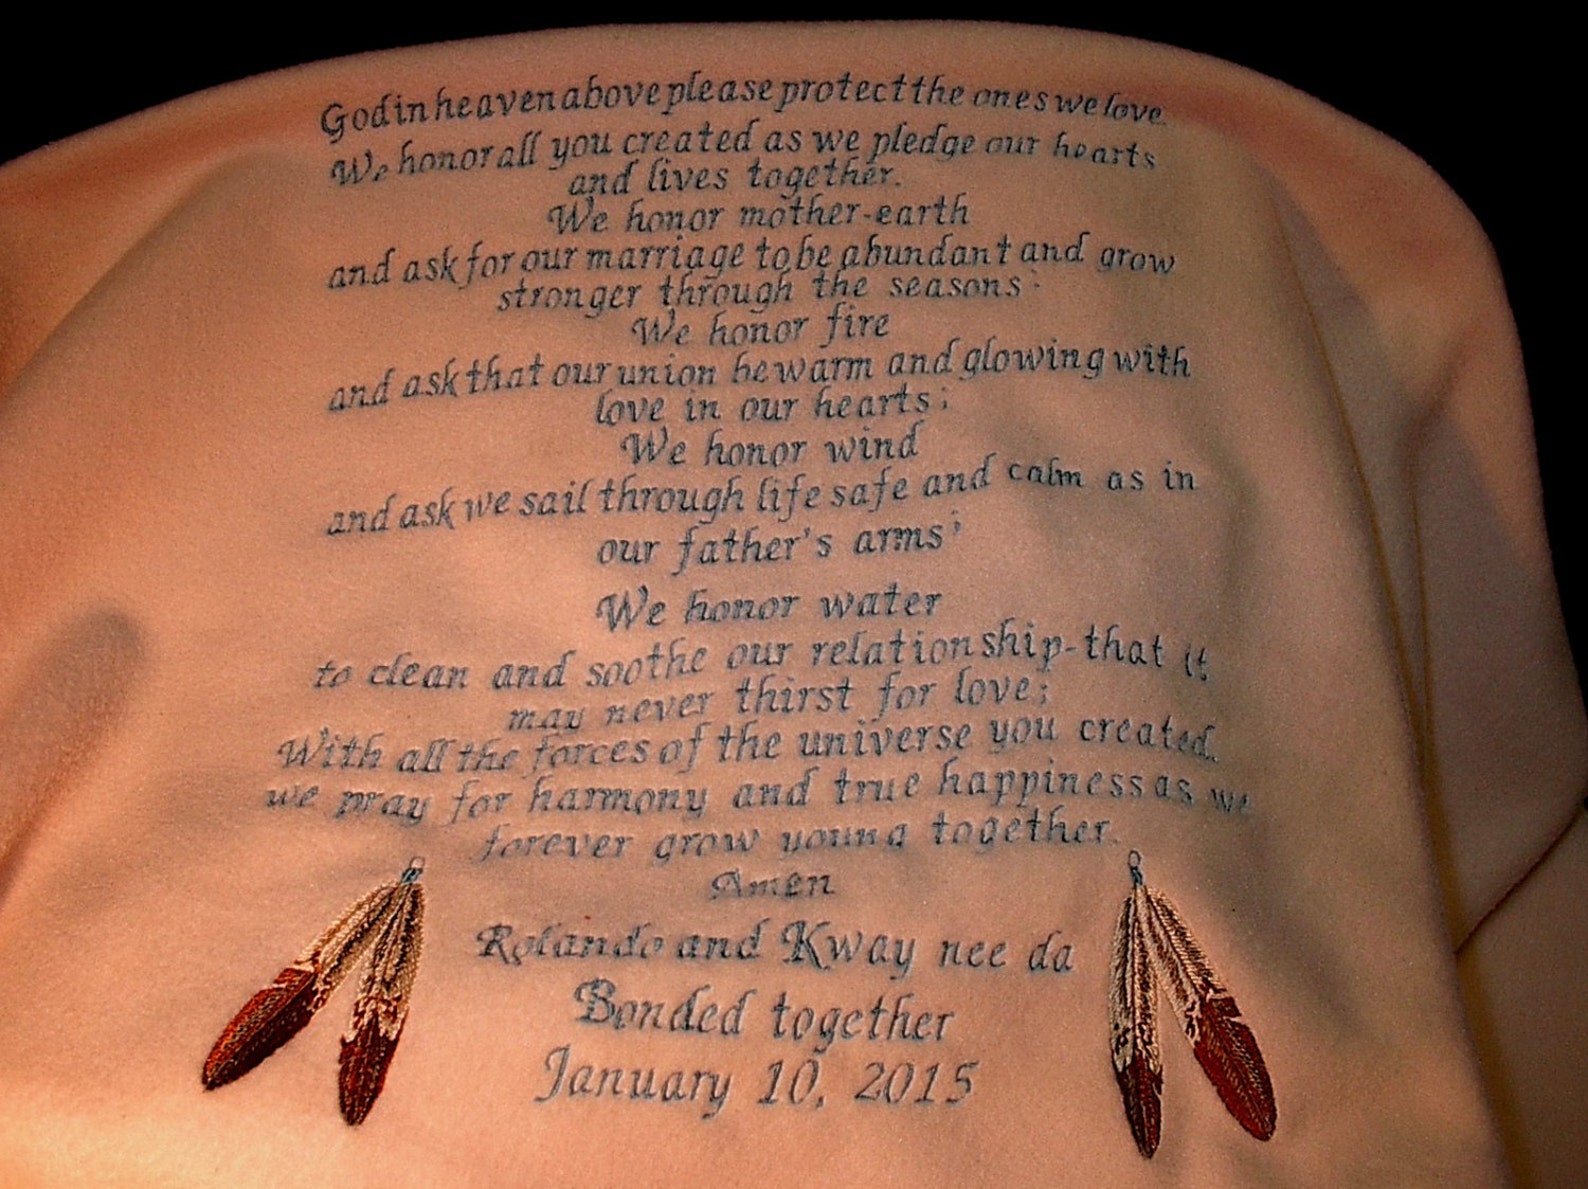 God in heaven above please protect the ones we love.
We honor all you created as we pledge our hearts
and lives together.
We honor mother-earth
and ask for our marriage to be abundant and grow
stronger through the seasons;
We honor fire
and ask that our union be warm and glowing with
love in our hearts;
We honor wind
and ask we sail through life safe and calm as in
our father's arms;
We honor water
to clean and soothe our relationship-that it
may never thirst for love;
With all the forces of the universe you created,
we pray for harmony and true happiness as we
forever grow young together.
Amen
Rolando and Kway nee da
Bonded together
January 10, 2015